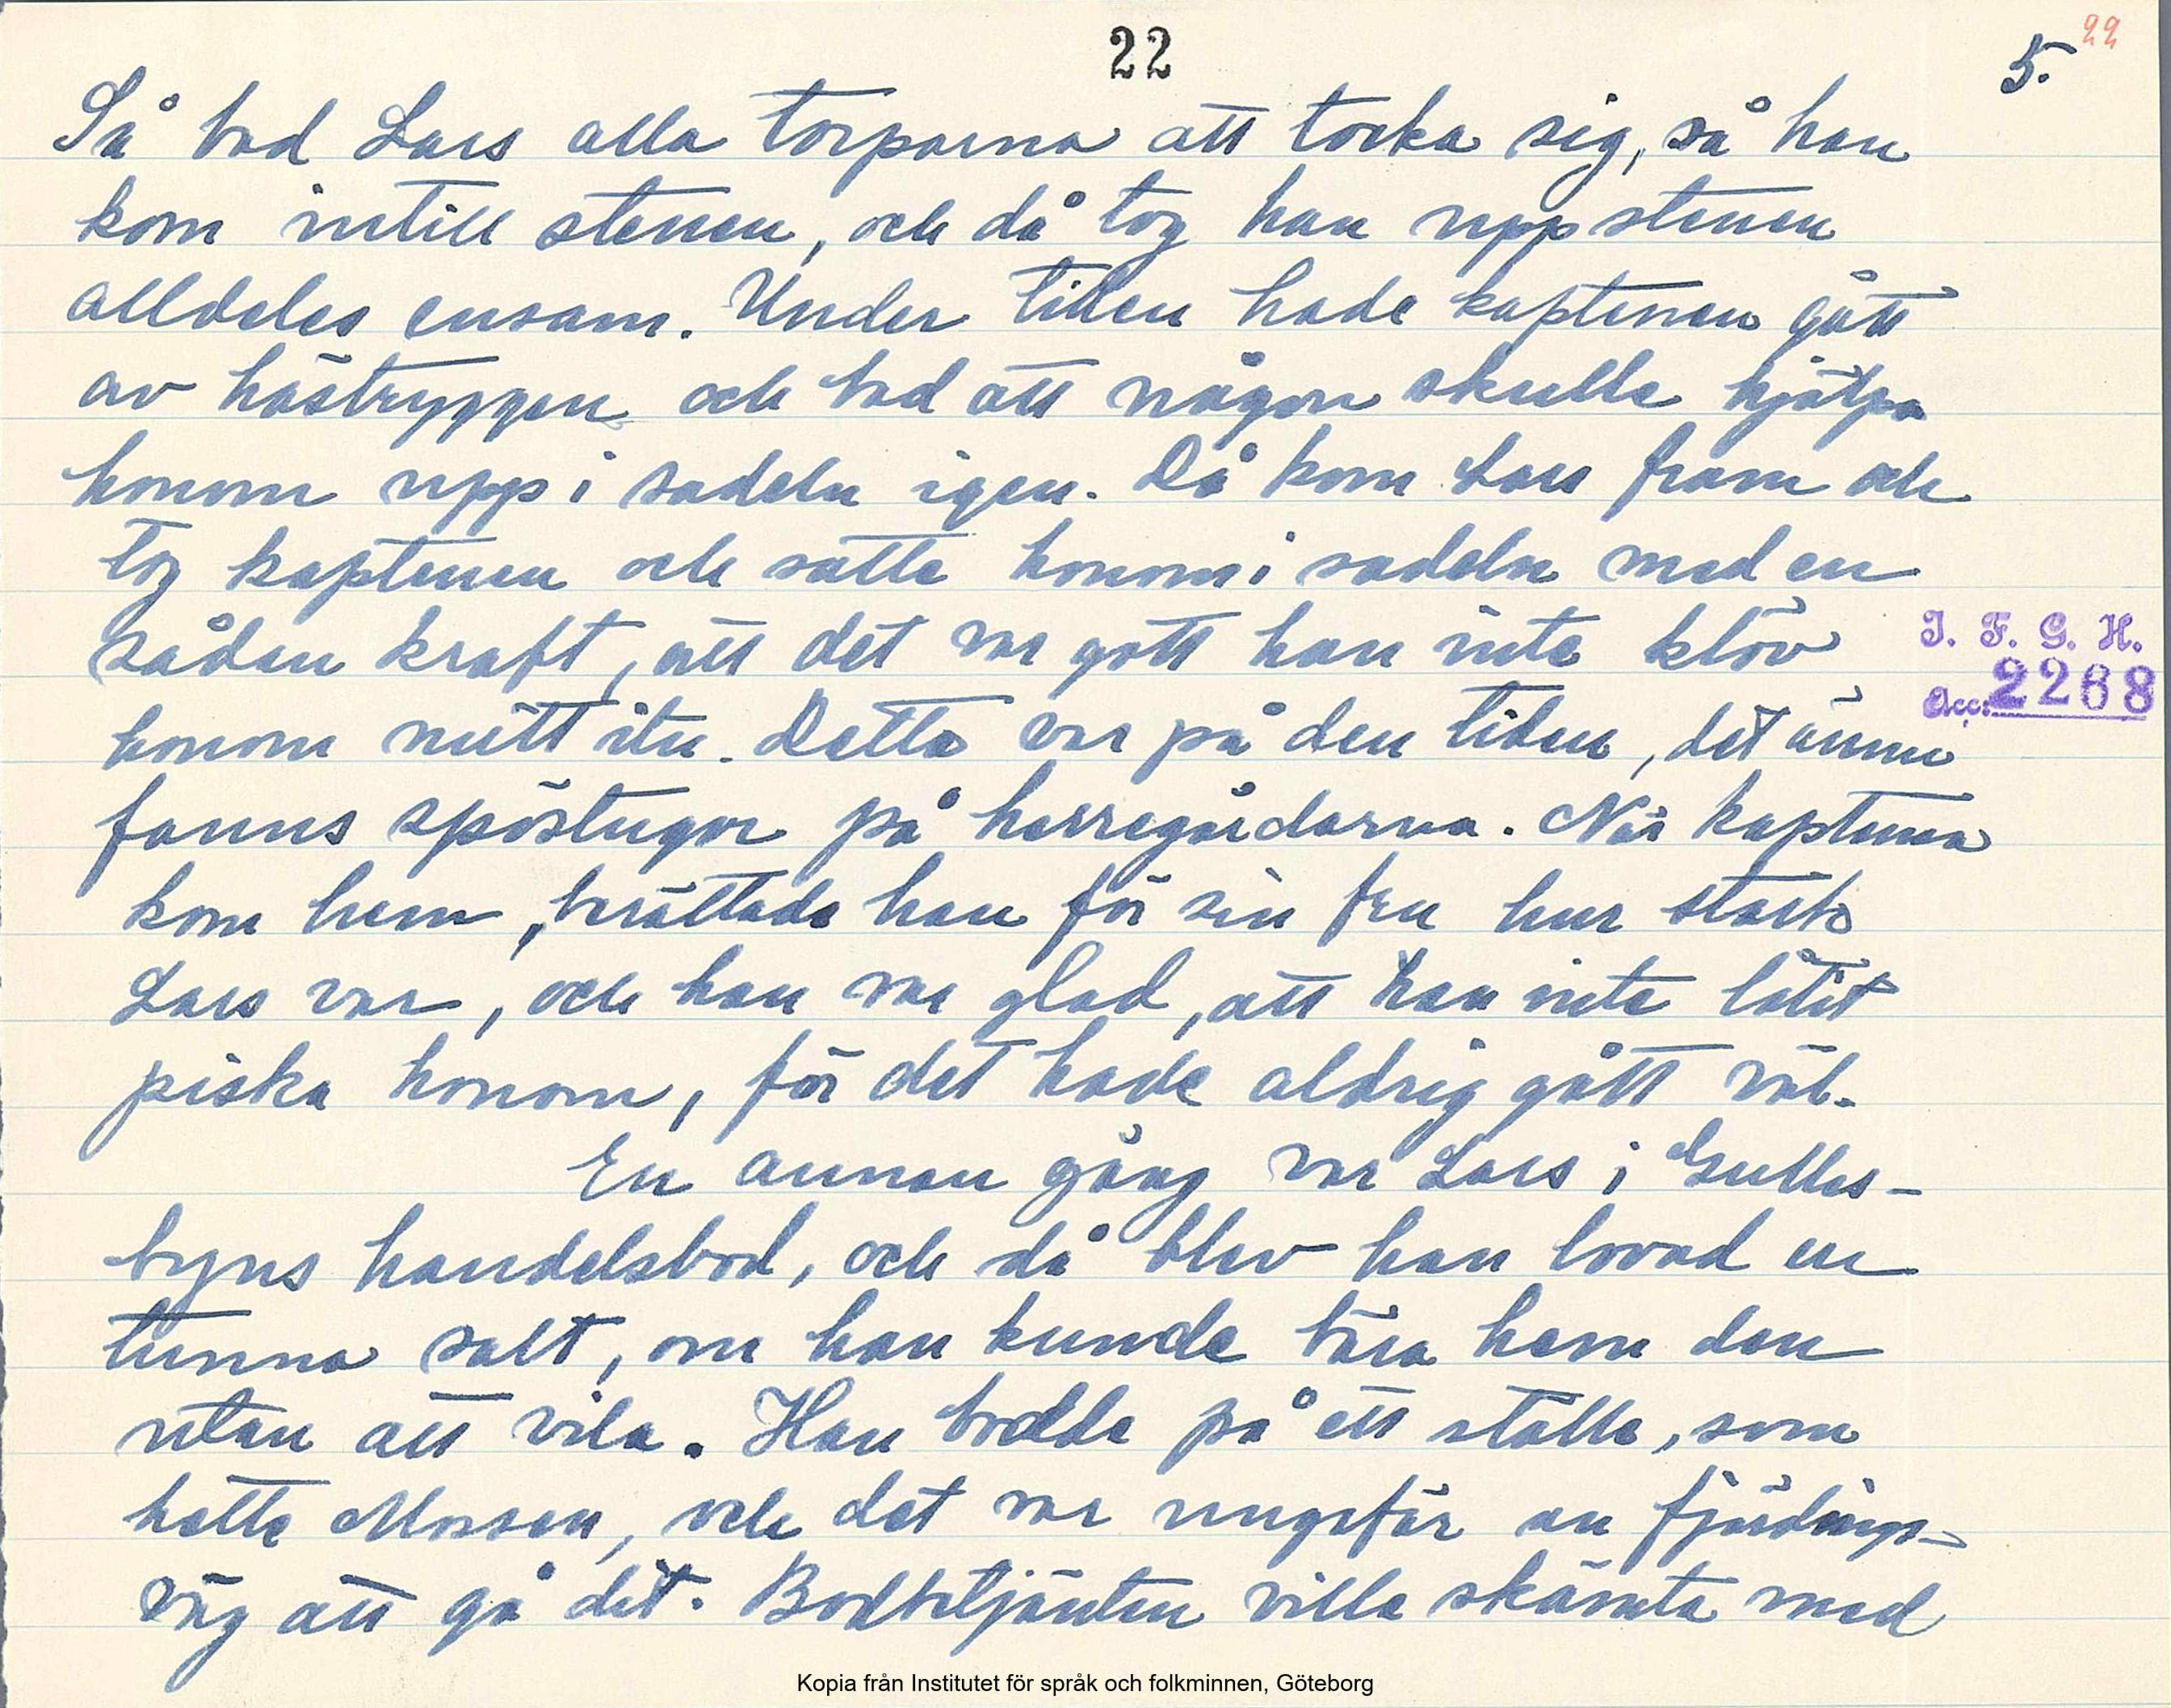 22
5.
22
Så bad Lars alla torparna att torka sig, så han
kom intill stenen, och då tog han upp stenen
alldeles ensam. Under tiden hade kaptenen gått
av hästryggen och bad att någon skulle hjälpa
honom upp i sadeln igen. Då kom Lars fram och
tog kaptenen och satte honom i sadeln med en
sådan kraft, att det var gott han inte klöv
honom mitt itu. Detta var på den tiden, det ännu
fanns spöstugor på herregårdarna. När kaptenen
kom hem, berättade han för sin fru hur stark
Lars var, och han var glad, att han inte låtit
piska honom, för det hade aldrig gått väl.
En annan gång var Lars i Gulles-
byns handelsbod, och då blev han lovad en
tunna salt, om han kunde bära hem den
utan att vila. Han bodde på ett ställe, som
hette Mossen, och det var ungefär en fjärdings-
väg att gå dit. Bodbetjänten ville skämta med
I. F. G. H.
Acc. 2268
Kopia från Institutet för språk och folkminnen, Göteborg